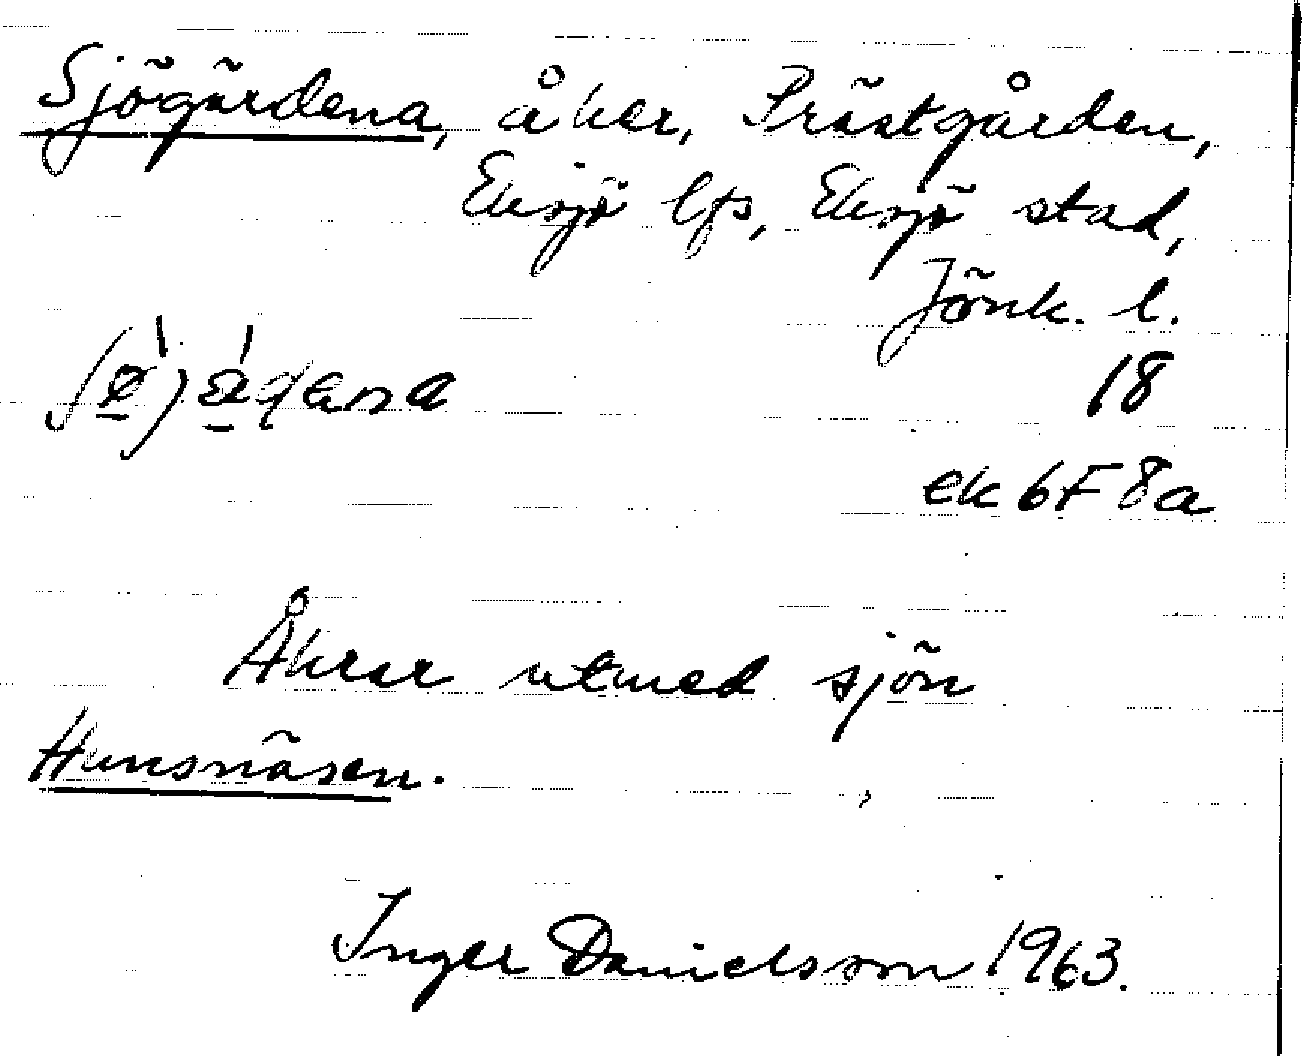 Sjögärdena, åker, Prästgården,
Eksjö lfs, Eksjö stad,
Jönk. l.
18
ek 6F8a
Åkrar utmed sjön
Hunsnäsen.
Inger Danielsson 1963.